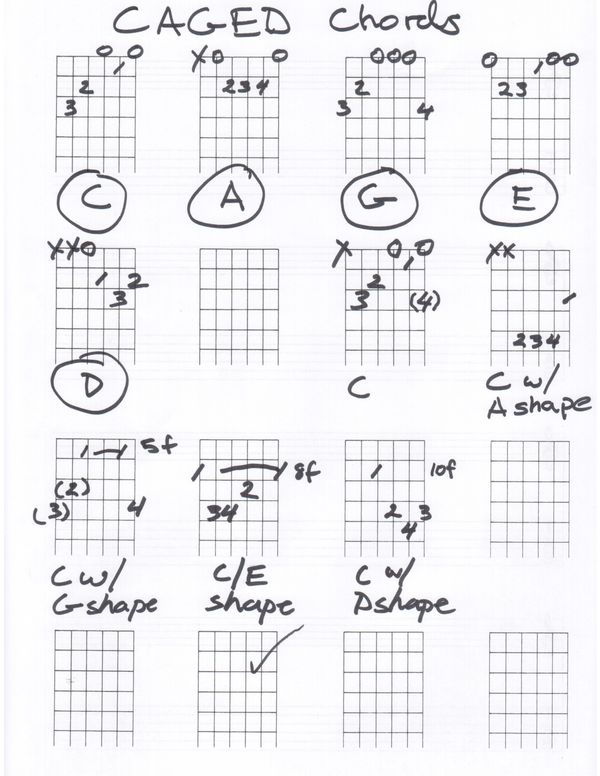 CAGED Chords
0 1 0
2
3
X 0 0
2 3 4
0 0 0
2
3 4
0 1 0 0
2 3
C A G E
X X 0
1 2
3
X 0 1 0
2
3 (4)
X X
1
2 3 4
D
C
C w/
A shape
1 1 5f
(2)
(3) 4
1 1 8f
2
3 4
1 10f
2 3
4
C w/
G shape
C/E
shape
C w/
D shape